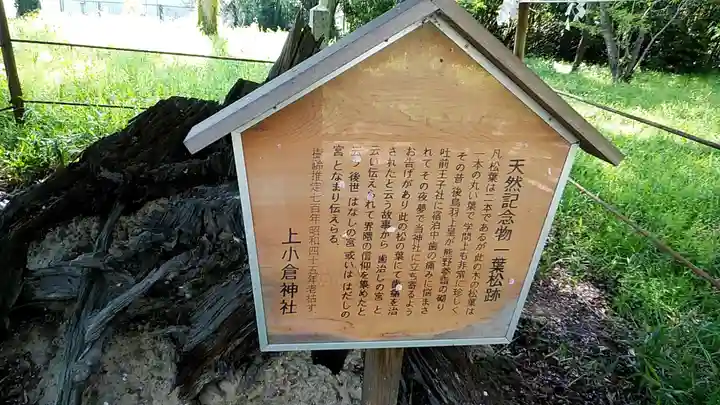 天然記念物 一葉松跡
凡松葉は二本であるが此の木の松葉は
一本の丸い葉で学問上も非常に珍しく
その昔後鳥羽上皇が熊野参詣の砌り
吐前王子社に宿泊中歯の痛みに悩まさ
れてその夜夢で当神社に立ち寄るよう
お告げがあり此の松の葉にて歯痛を治
されたと云う故事から 歯治しの宮 と
云い伝えられて界隈の信仰を集めたと
云う 後世 はなしの宮 或いは はだしの
宮 となまり伝えらる。
樹齢推定七百年昭和四十五年老枯す
上小倉神社